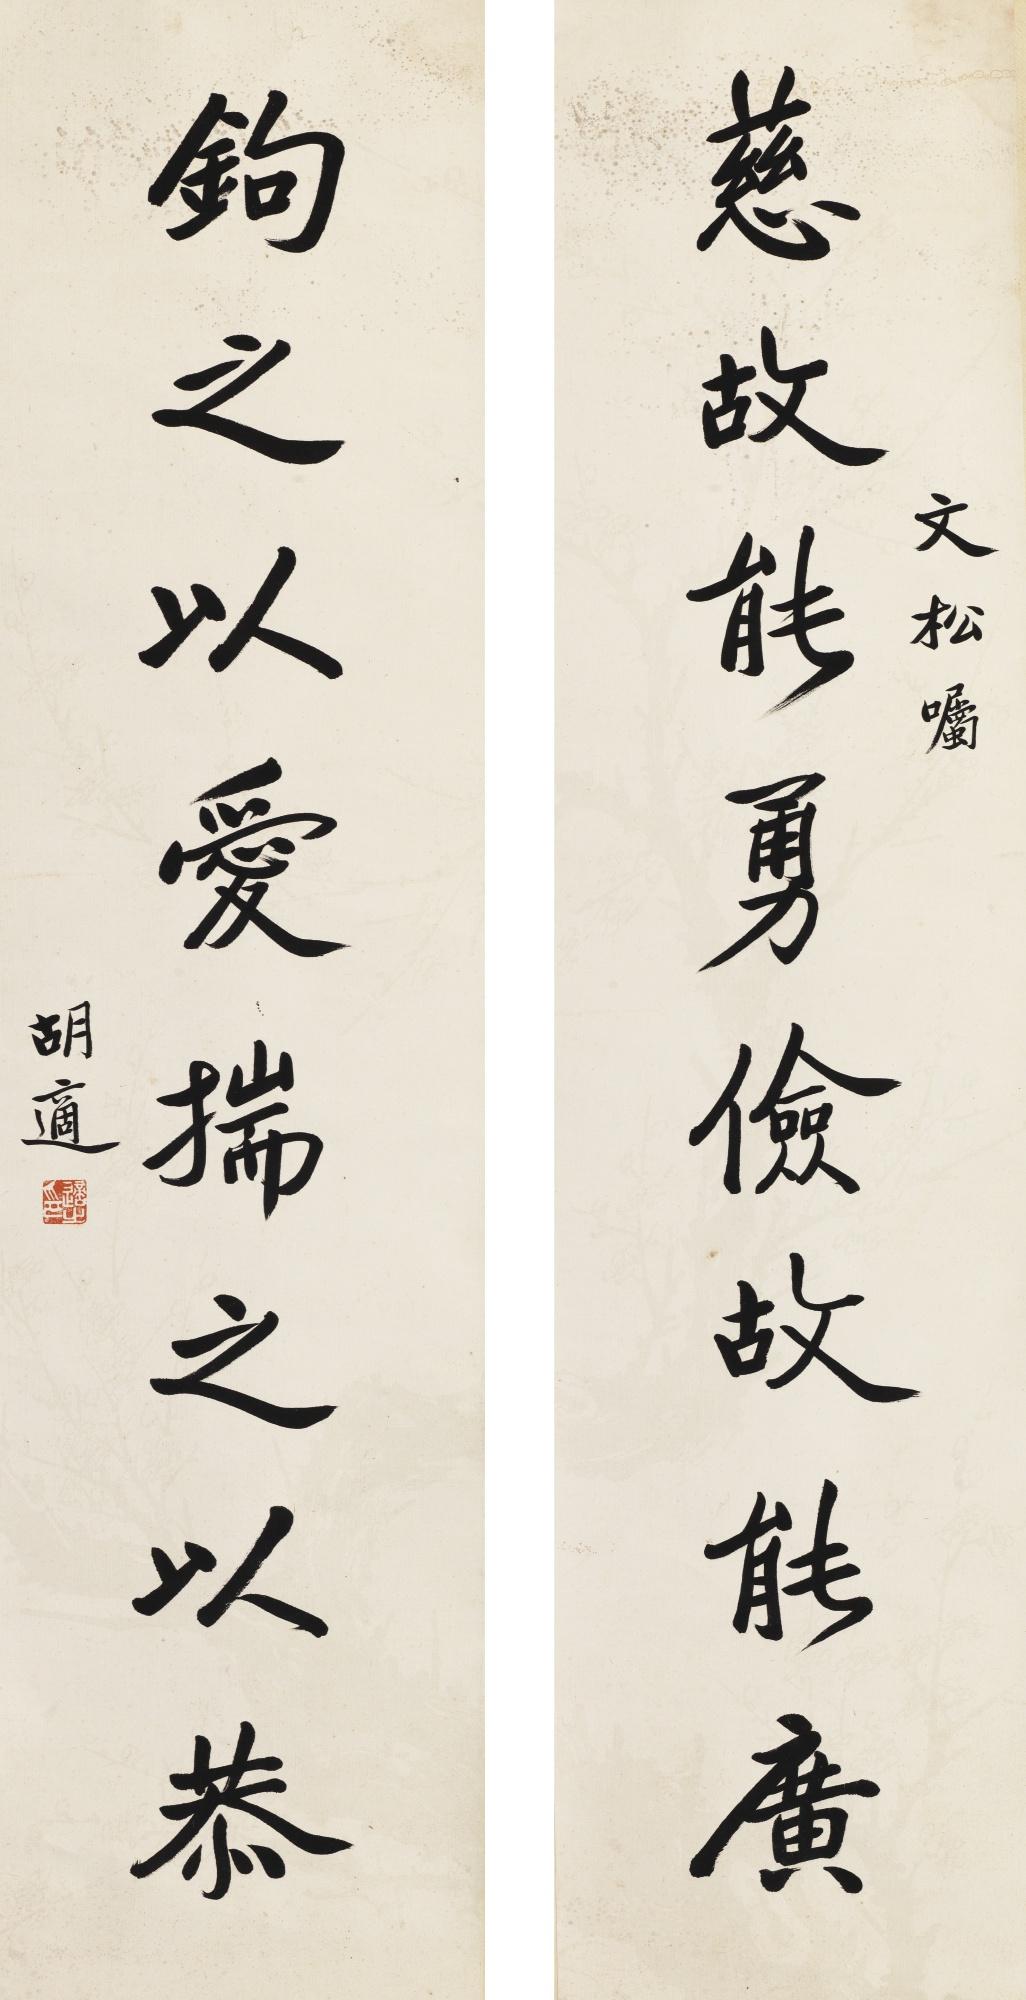 慈故能勇儉故能廣
文松囑
鉤之以愛揣之以恭
胡適
適之